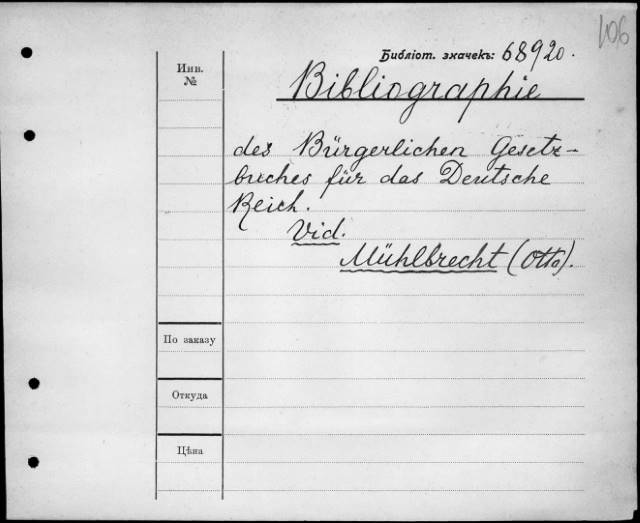 106
Библіот. значекъ: 68920.
Инв.
№
Bibliographie
des Bürgerlichen Gesetz-
buches für das Deutsche
Reich.
Vid.
Mühlbrecht (Otto).
По заказу
Откуда
Цѣна